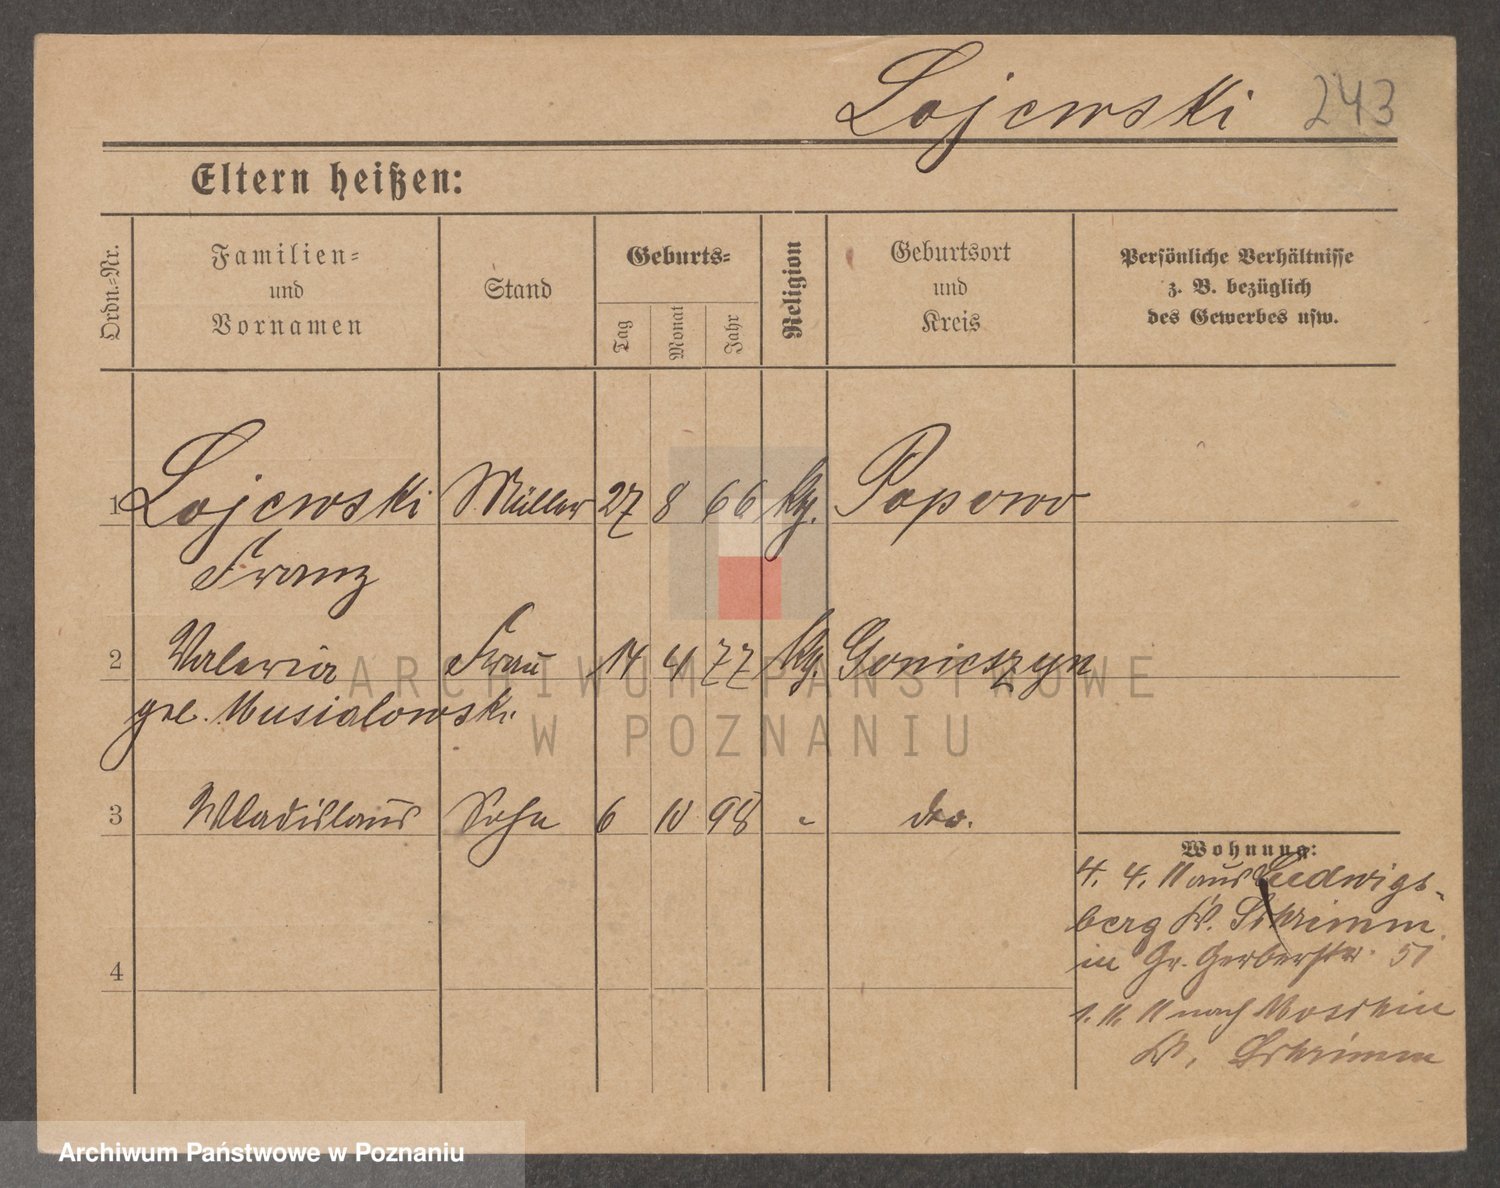 Lojewski 243
Eltern heißen:
Ordn.-Nr.
Familien-
und
Vornamen
Stand
Geburts-
Tag
Monat
Jahr
Religion
Geburtsort
und
Kreis
Persönliche Verhältnisse
z. B. bezüglich
des Gewerbes usw.
1 Lojewski Müller 27 8 66 kg. Popowo
Franz
2 Valeria Frau 14 4 77 kg. Goniczyn
geb. Musialowski
3 Wladislaus Sohn 6 10 98 " dto.
4
Wohnung:
4. 4. 11 aus Ludwigs-
berg Kr. Schrimm
in Gr. Gerberstr. 51
1. 11. 11 nach Moschin
Kr. Schrimm
ARCHIWUM PAŃSTWOWE
W POZNANIU
Archiwum Państwowe w Poznaniu